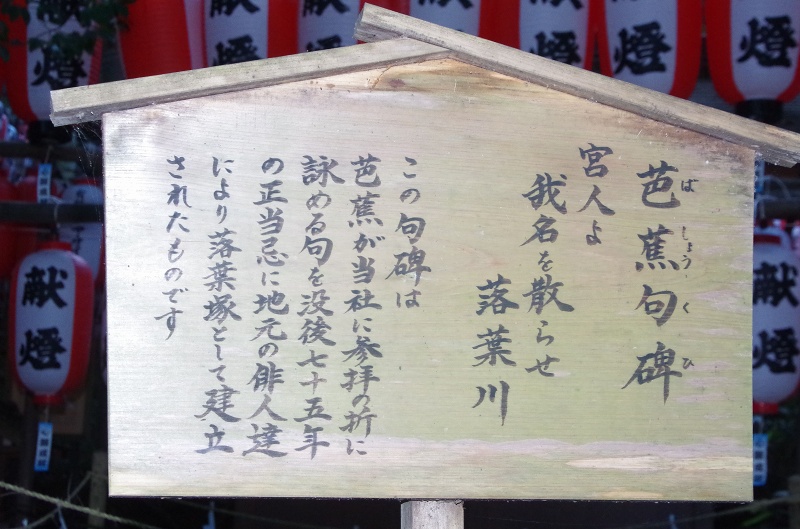 芭蕉句碑
ばしょうくひ
宮人よ
我名を散らせ
落葉川
この句碑は
芭蕉が当社に参拝の折に
詠める句を没後七十五年
の正当忌に地元の俳人達
により落葉塚として建立
されたものです
献燈
献燈
献燈
献燈
献燈
献燈
献燈
燈